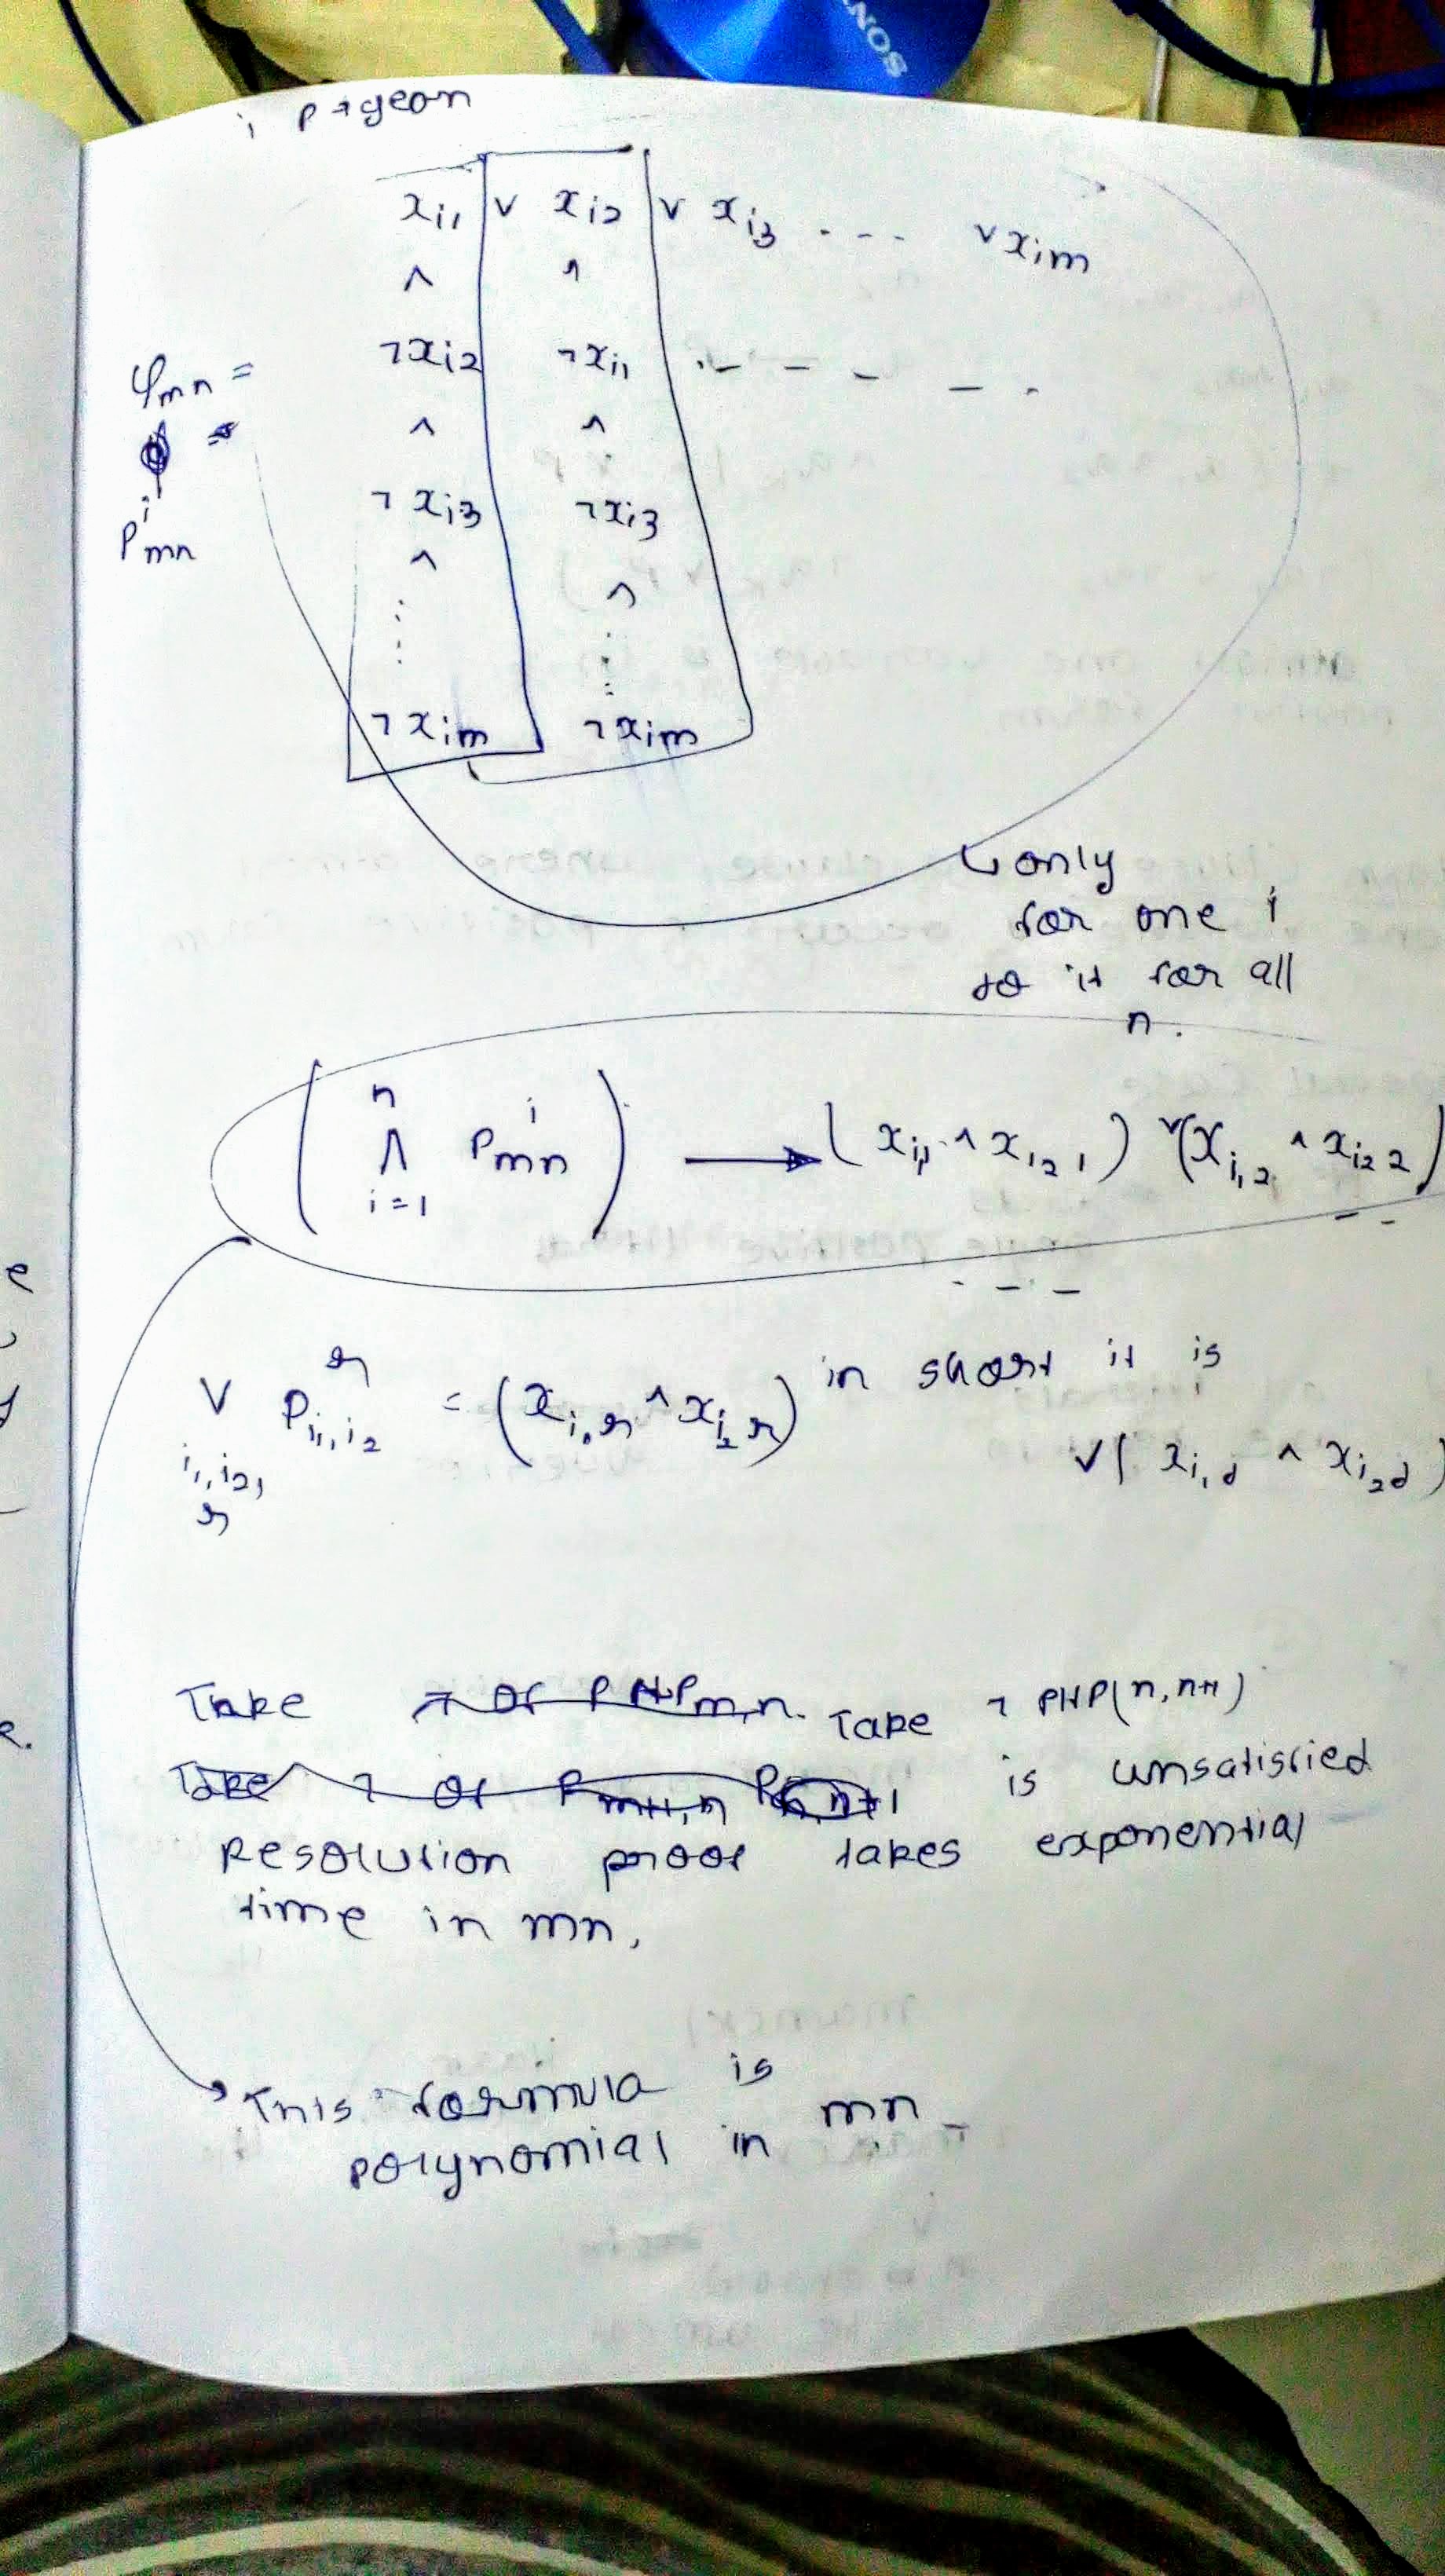 SONY
i pigeon
xi1 ∨ xi2 ∨ xi3 . - - - ∨ xim
∧ ∧
φmn = ¬xi2 ¬xi1 - - - - -
∧ ∧
¬xi3 ¬xi3
P^i mn
∧ ∧
⋮ ⋮
¬xim ¬xim
↳ only
for one i
do it for all
n.
( n ∧ i=1 P^i mn ) ⟶ (xi₁1 ∧ xi₂1) ∨ (xi₁2 ∧ xi₂2)
- -
- - -
∨ i₁,i₂,r P^r i₁,i₂ = (xi₁r ∧ xi₂r) in short it is
∨( xi₁j ∧ xi₂j )
Take ¬ of PHPm,n. Take ¬ PHP(n,n+1)
Take ¬ of Pm+1,n Pn,n+1 is unsatisfied
Resolution proof takes exponential
time in mn,
This formula is
polynomial in mn